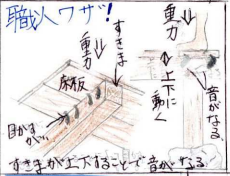 職人ワザ!
すきま
重力
床板
目かすがい
重力
上下に動く
音がなる
すきまが上下することで音がなる